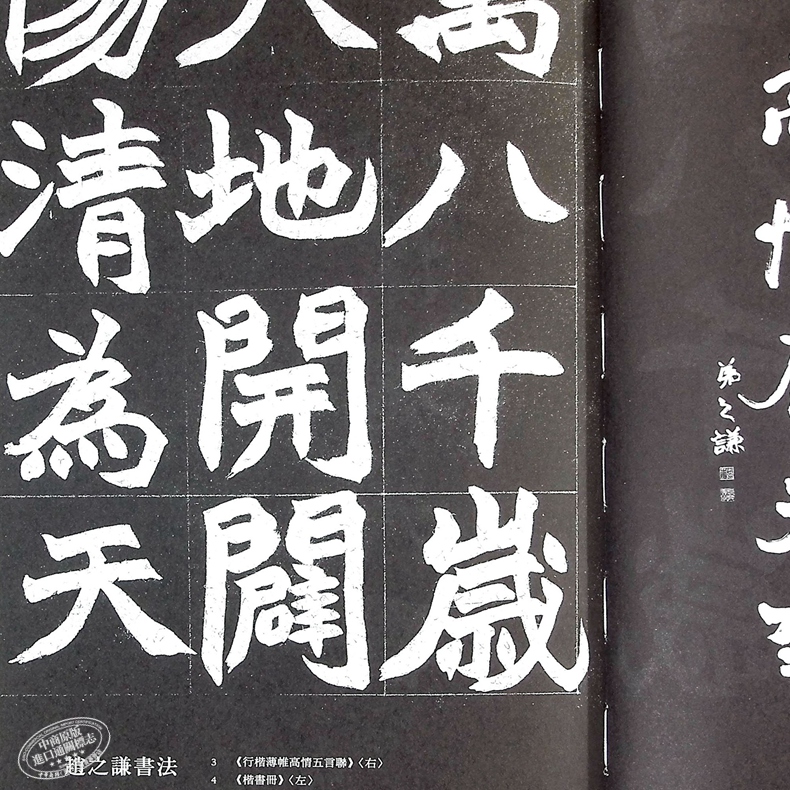 弟之謙
萬八千歲
天地開闢
陽清為天
趙之謙書法
3 《行楷薄帷高情五言聯》〈右〉
4 《楷書冊》〈左〉
中商原版
進口通關標志